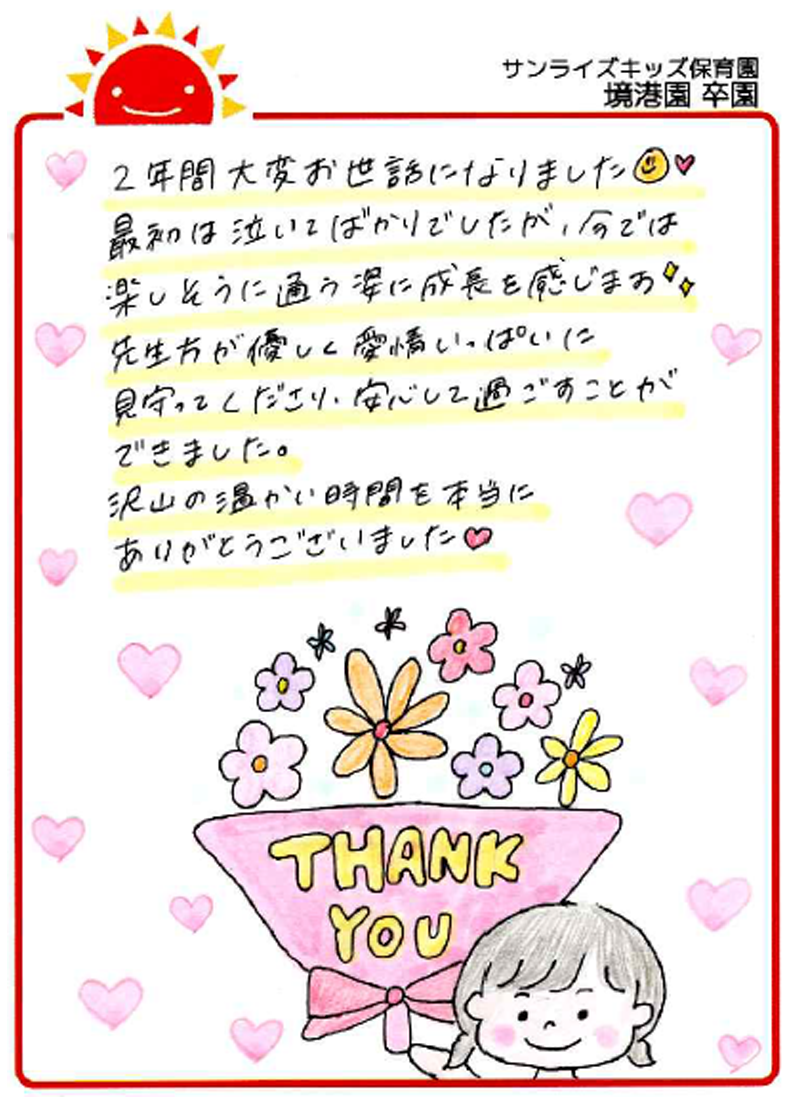 サンライズキッズ保育園
境港園 卒園
2年間大変お世話になりました
最初は泣いてばかりでしたが、今では
楽しそうに通う姿に成長を感じます
先生方が優しく愛情いっぱいに
見守ってくださり、安心して過ごすことが
できました。
沢山の温かい時間を本当に
ありがとうございました
THANK
YOU